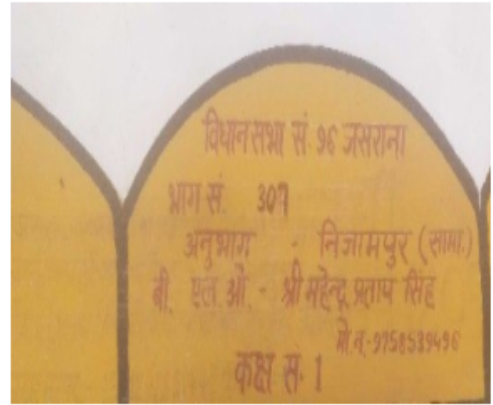 विधान सभा सं. 96 जसराना
भाग सं. 307
अनुभाग - निजामपुर (सामा.)
बी. एल. ओ. - श्री महेन्द्र प्रताप सिंह
मो. न.-9758539496
कक्ष सं. 1